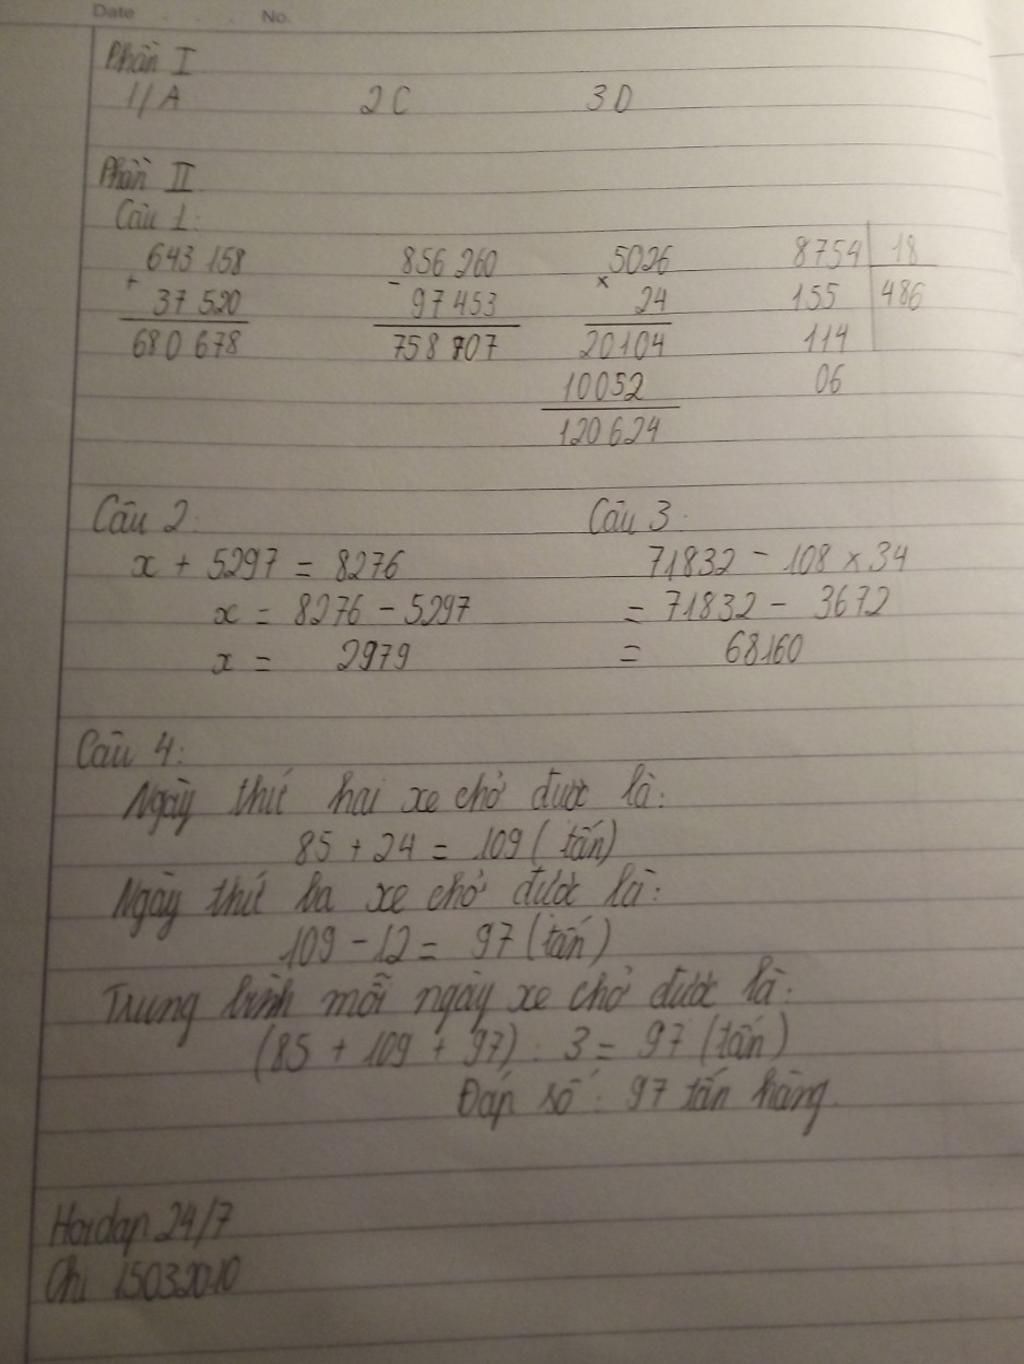 Date . . . No.
Phần I
1/A 2C 3D
Phần II
Câu 1:
643 158 856 260 5026 8754 18
+ - x
37 520 97 453 24 155 486
680 678 758 807 20104 114
10052 06
120 624
Câu 2: Câu 3:
x + 5297 = 8276 71832 - 108 x 34
x = 8276 - 5297 = 71832 - 3672
x = 2979 = 68160
Câu 4:
Ngày thứ hai xe chở được là:
85 + 24 = 109 (tấn)
Ngày thứ ba xe chở được là:
109 - 12 = 97 (tấn)
Trung bình mỗi ngày xe chở được là:
(85 + 109 + 97) : 3 = 97 (tấn)
Đáp số : 97 tấn hàng.
Hoidap 24/7
Chi 15032010